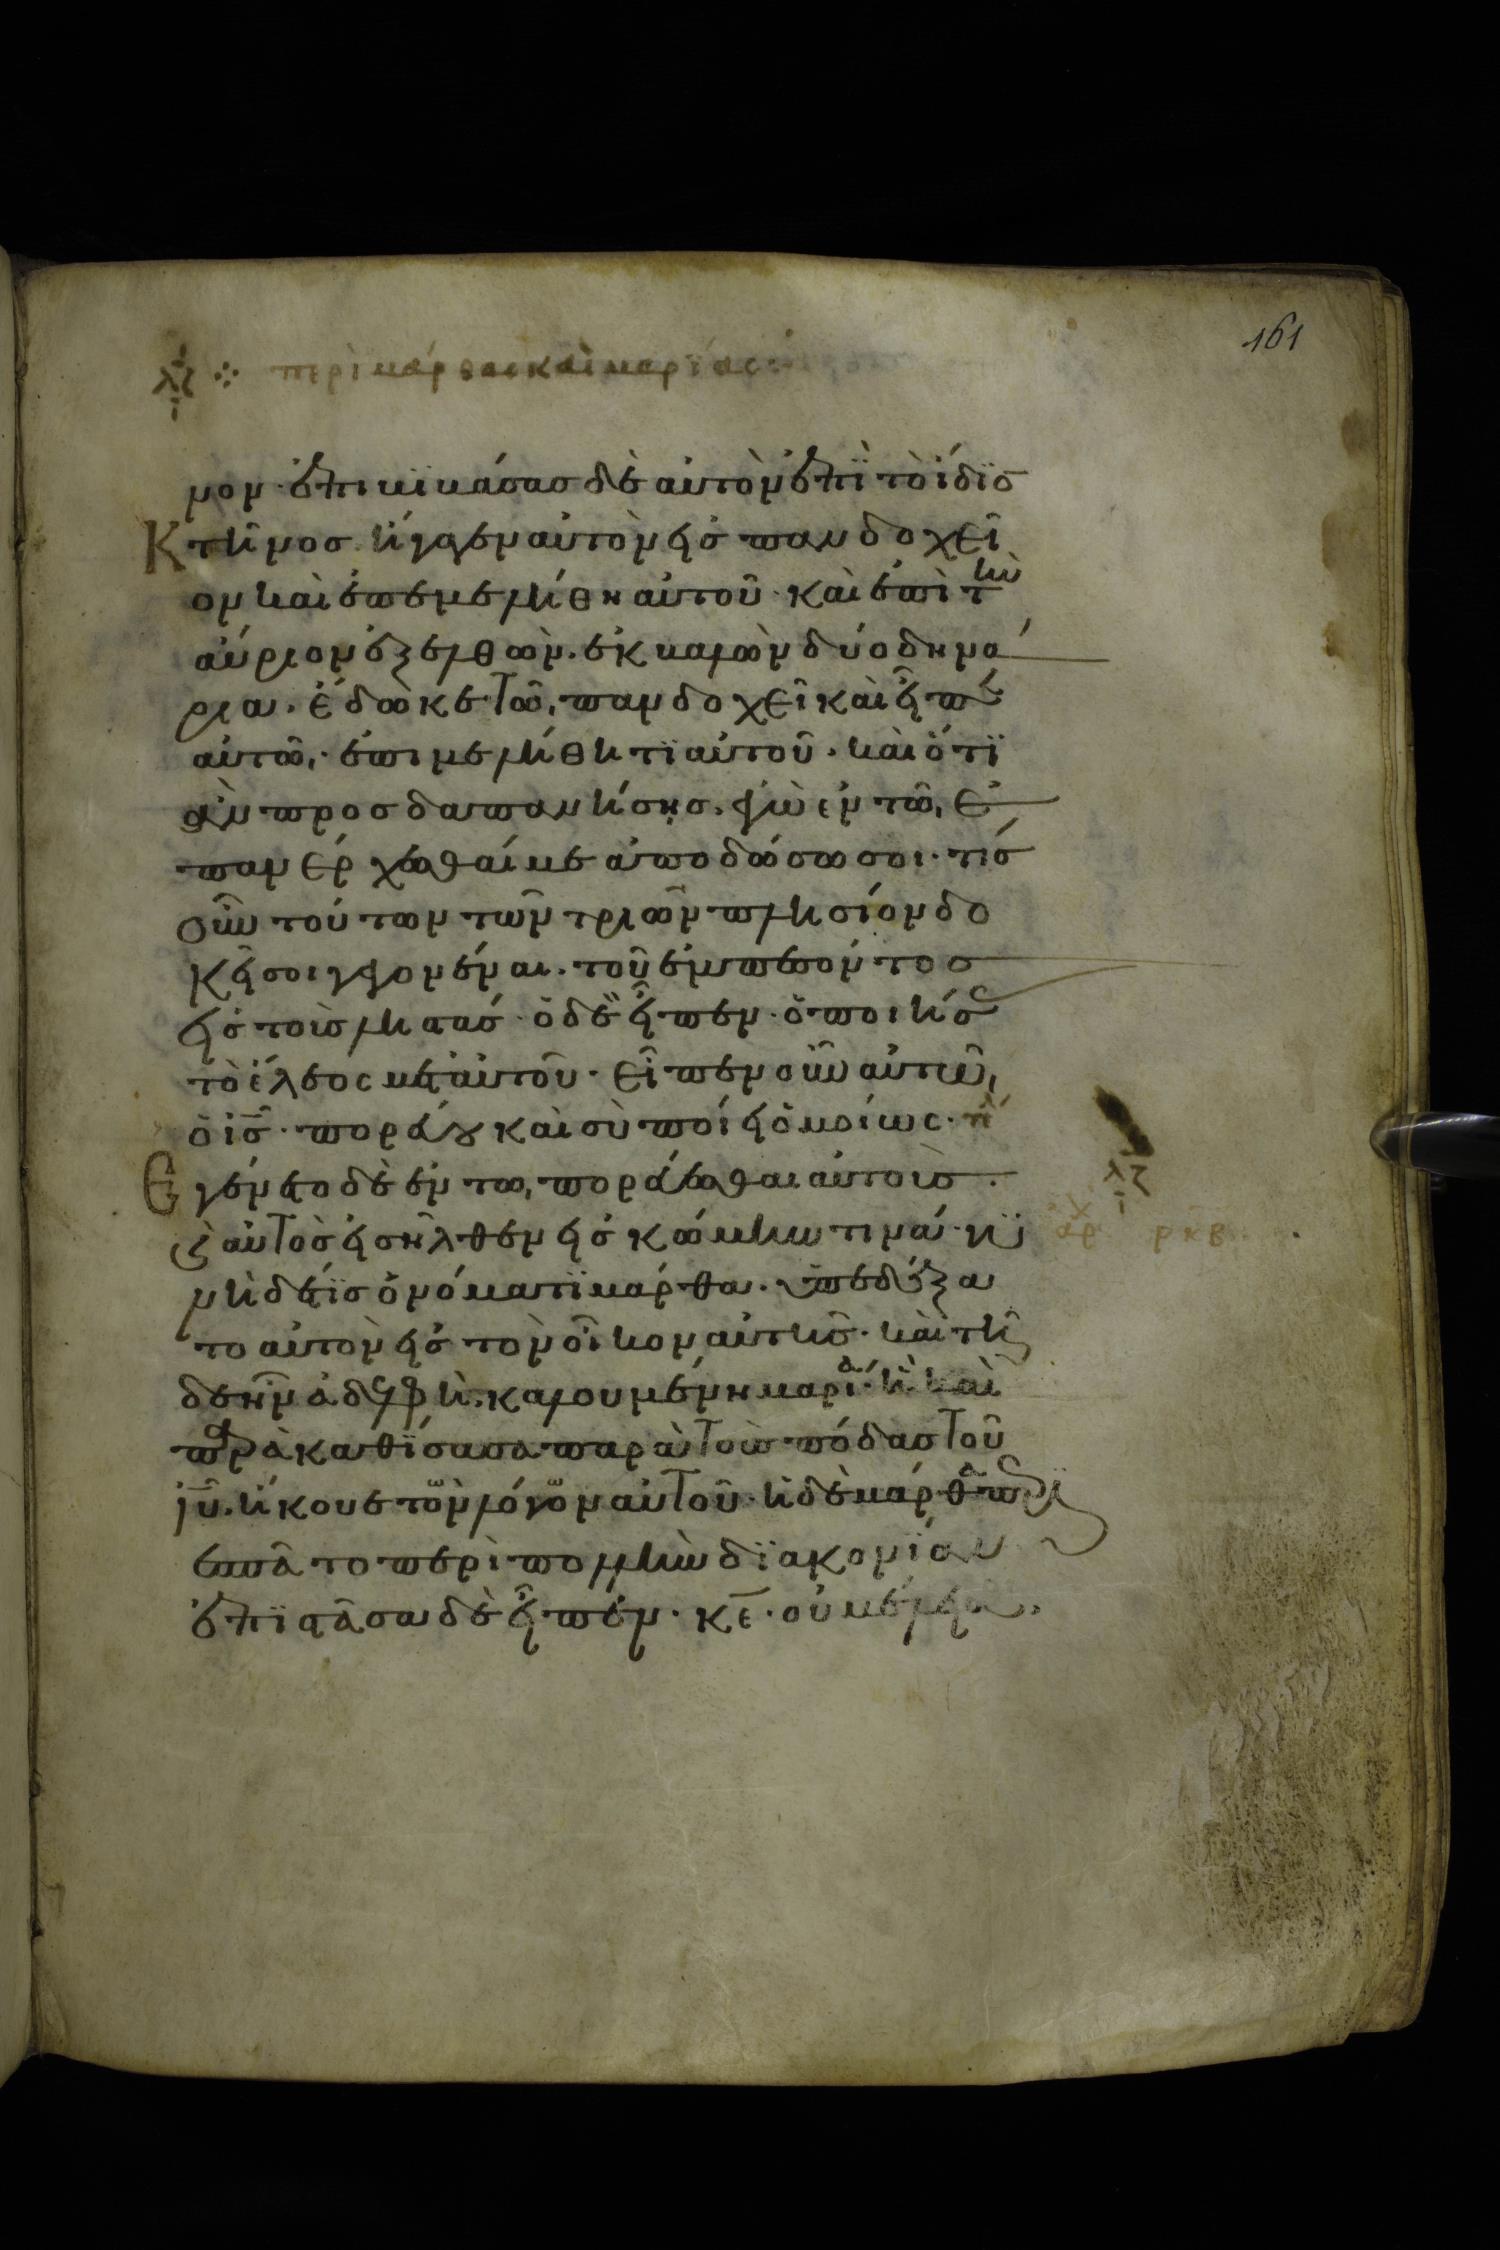 161
λζ ⁘ περὶ μάρθας καὶ μαρΐας
νον· ἐπικϊκάσας δὲ αὐτὸν ἐπῒ τὸ ἴδϊο
κτῆνος. ἤγαγεν αὐτὸν εἰς πανδοχεῖ
ον καὶ ἐπεμελήθη αὐτοῦ· καὶ ἐπὶ τὴν
αὔριον ἐξελθὼν. ἐκβαλὼν δύο δηνά
ρια. ἔδωκε τῶ, πανδοχεῖ καὶ εἶπεν
αὐτῶ,· ἐπιμελήθητϊ αὐτοῦ· καὶ ὅτϊ
ἂν προσδαπανήσης. ἐγὼ ἐν τῶ, ἐ
πανέρχεσθαί με ἀποδώσω σοι· τίς
οὖν τούτων τῶν τριῶν πλησίον δο
κεῖ σοι γεγονέναι. τοῦ ἐμπεσόντος
εἰς τοὺς ληστάς· ὁ δὲ εἶπεν· ὁ ποιήσας
τὸ ἔλεος μετ᾽ αὐτοῦ· εἶπεν οὖν αὐτῶ,
ὁ ις̅· πορεύου καὶ σὺ ποίει ὁμοίως·
Εγένετο δὲ ἐν τω, πορεύεσθαι αὐτοὺς·
καὶ αὐτὸς εἰσῆλθεν εἰς κώμην τινά· γϋ
νὴ δέ τϊς ὀνόματϊ μάρθα. ὑπεδέξα
το αὐτὸν εἰς τὸν οἶκον αὐτῆς· καὶ τῆ
δε ἦν ἀδελφὴ. καλουμένη μαρία· ἣ καὶ
παρακαθΐσασα παρὰ τοὺς πόδας τοῦ
ιυ̅. ἤκουε τὸν λόγον αὐτοῦ· ἡ δὲ μάρθα περϊ
εσπᾶτο περὶ πολλὴν δϊακονΐαν
ἐπϊστᾶσα δὲ εἶπεν· κε̅· οὐ μέλει
λζ
ἀρχ ρκβ